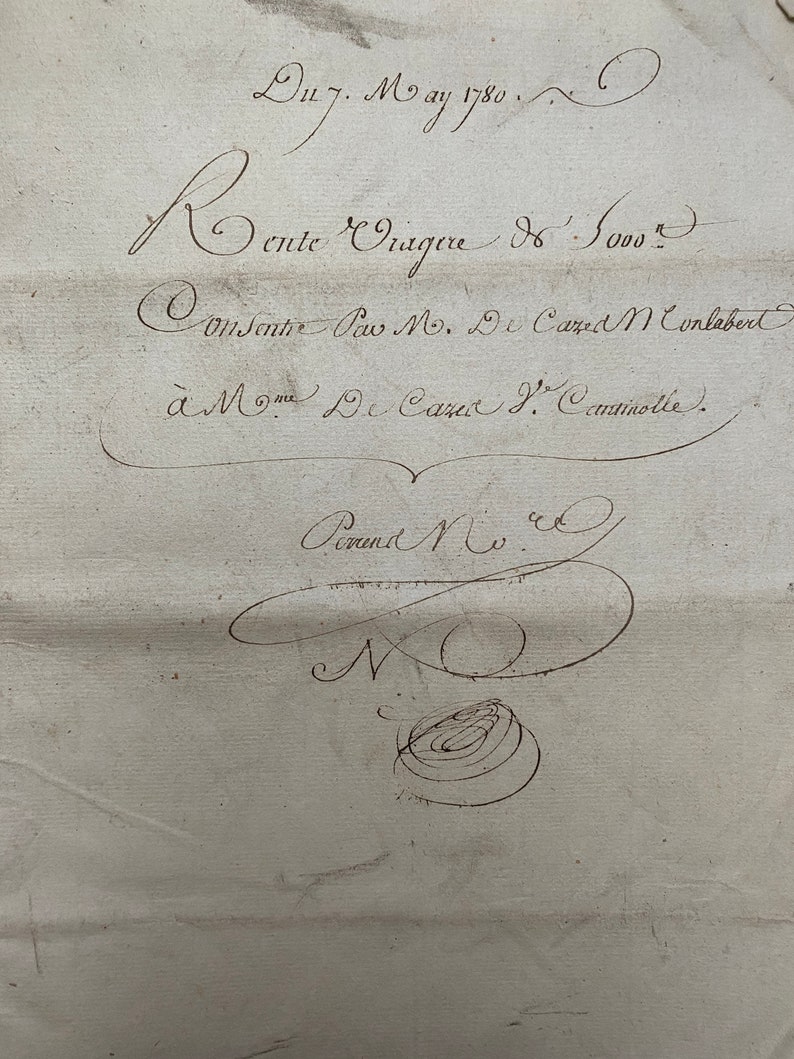 Du 7. May 1780.
Rente Viagere de 5000ᵗᵗ
Consentie Par M. De Cazed Monlabert
à Mᵐᵉ De Cazed Vᵉ Cantinolle.
Perrend Noʳᵉ
N